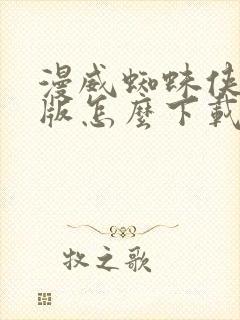 漫威蜘蛛侠
版怎麼下載
牧之歌